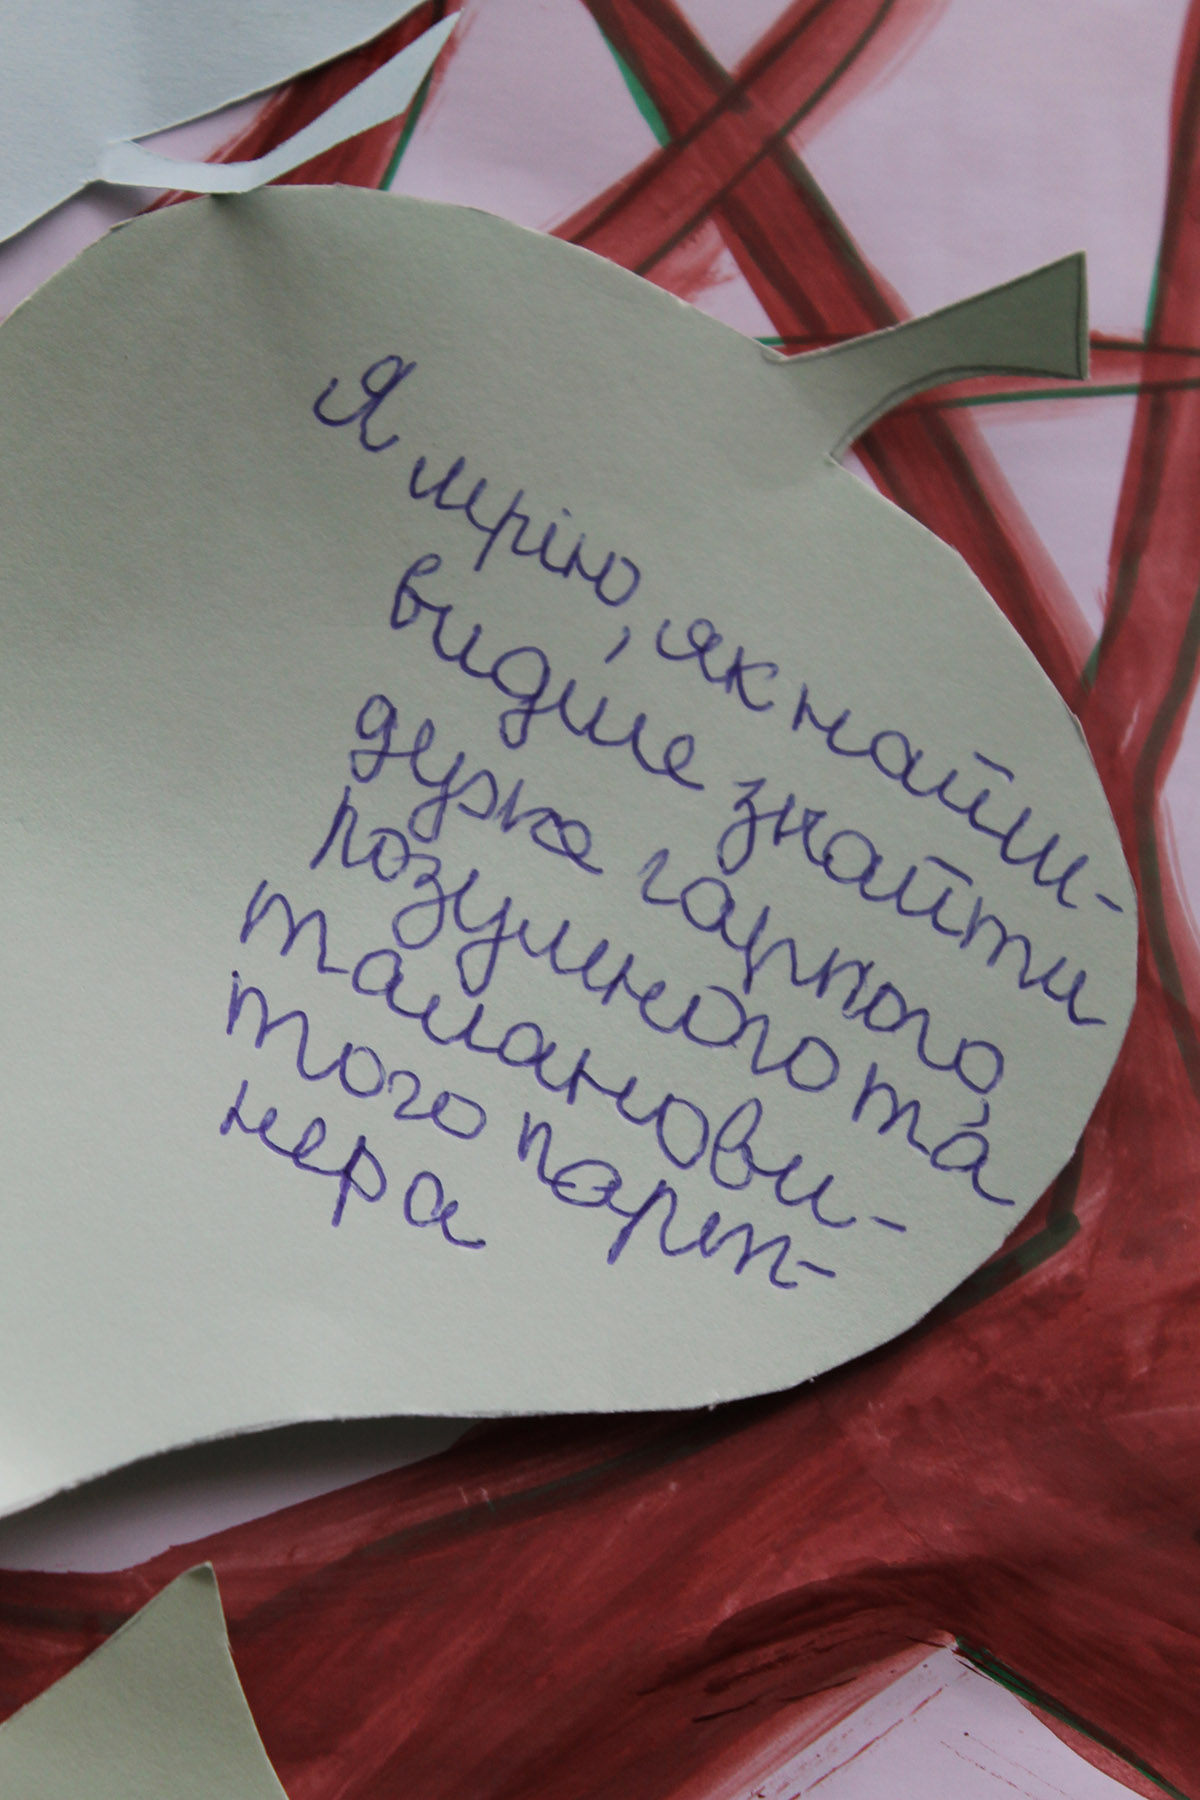 Я мрію, як найш-
видше знайти
дуже гарного,
розумного та
таланови-
того парт-
нера